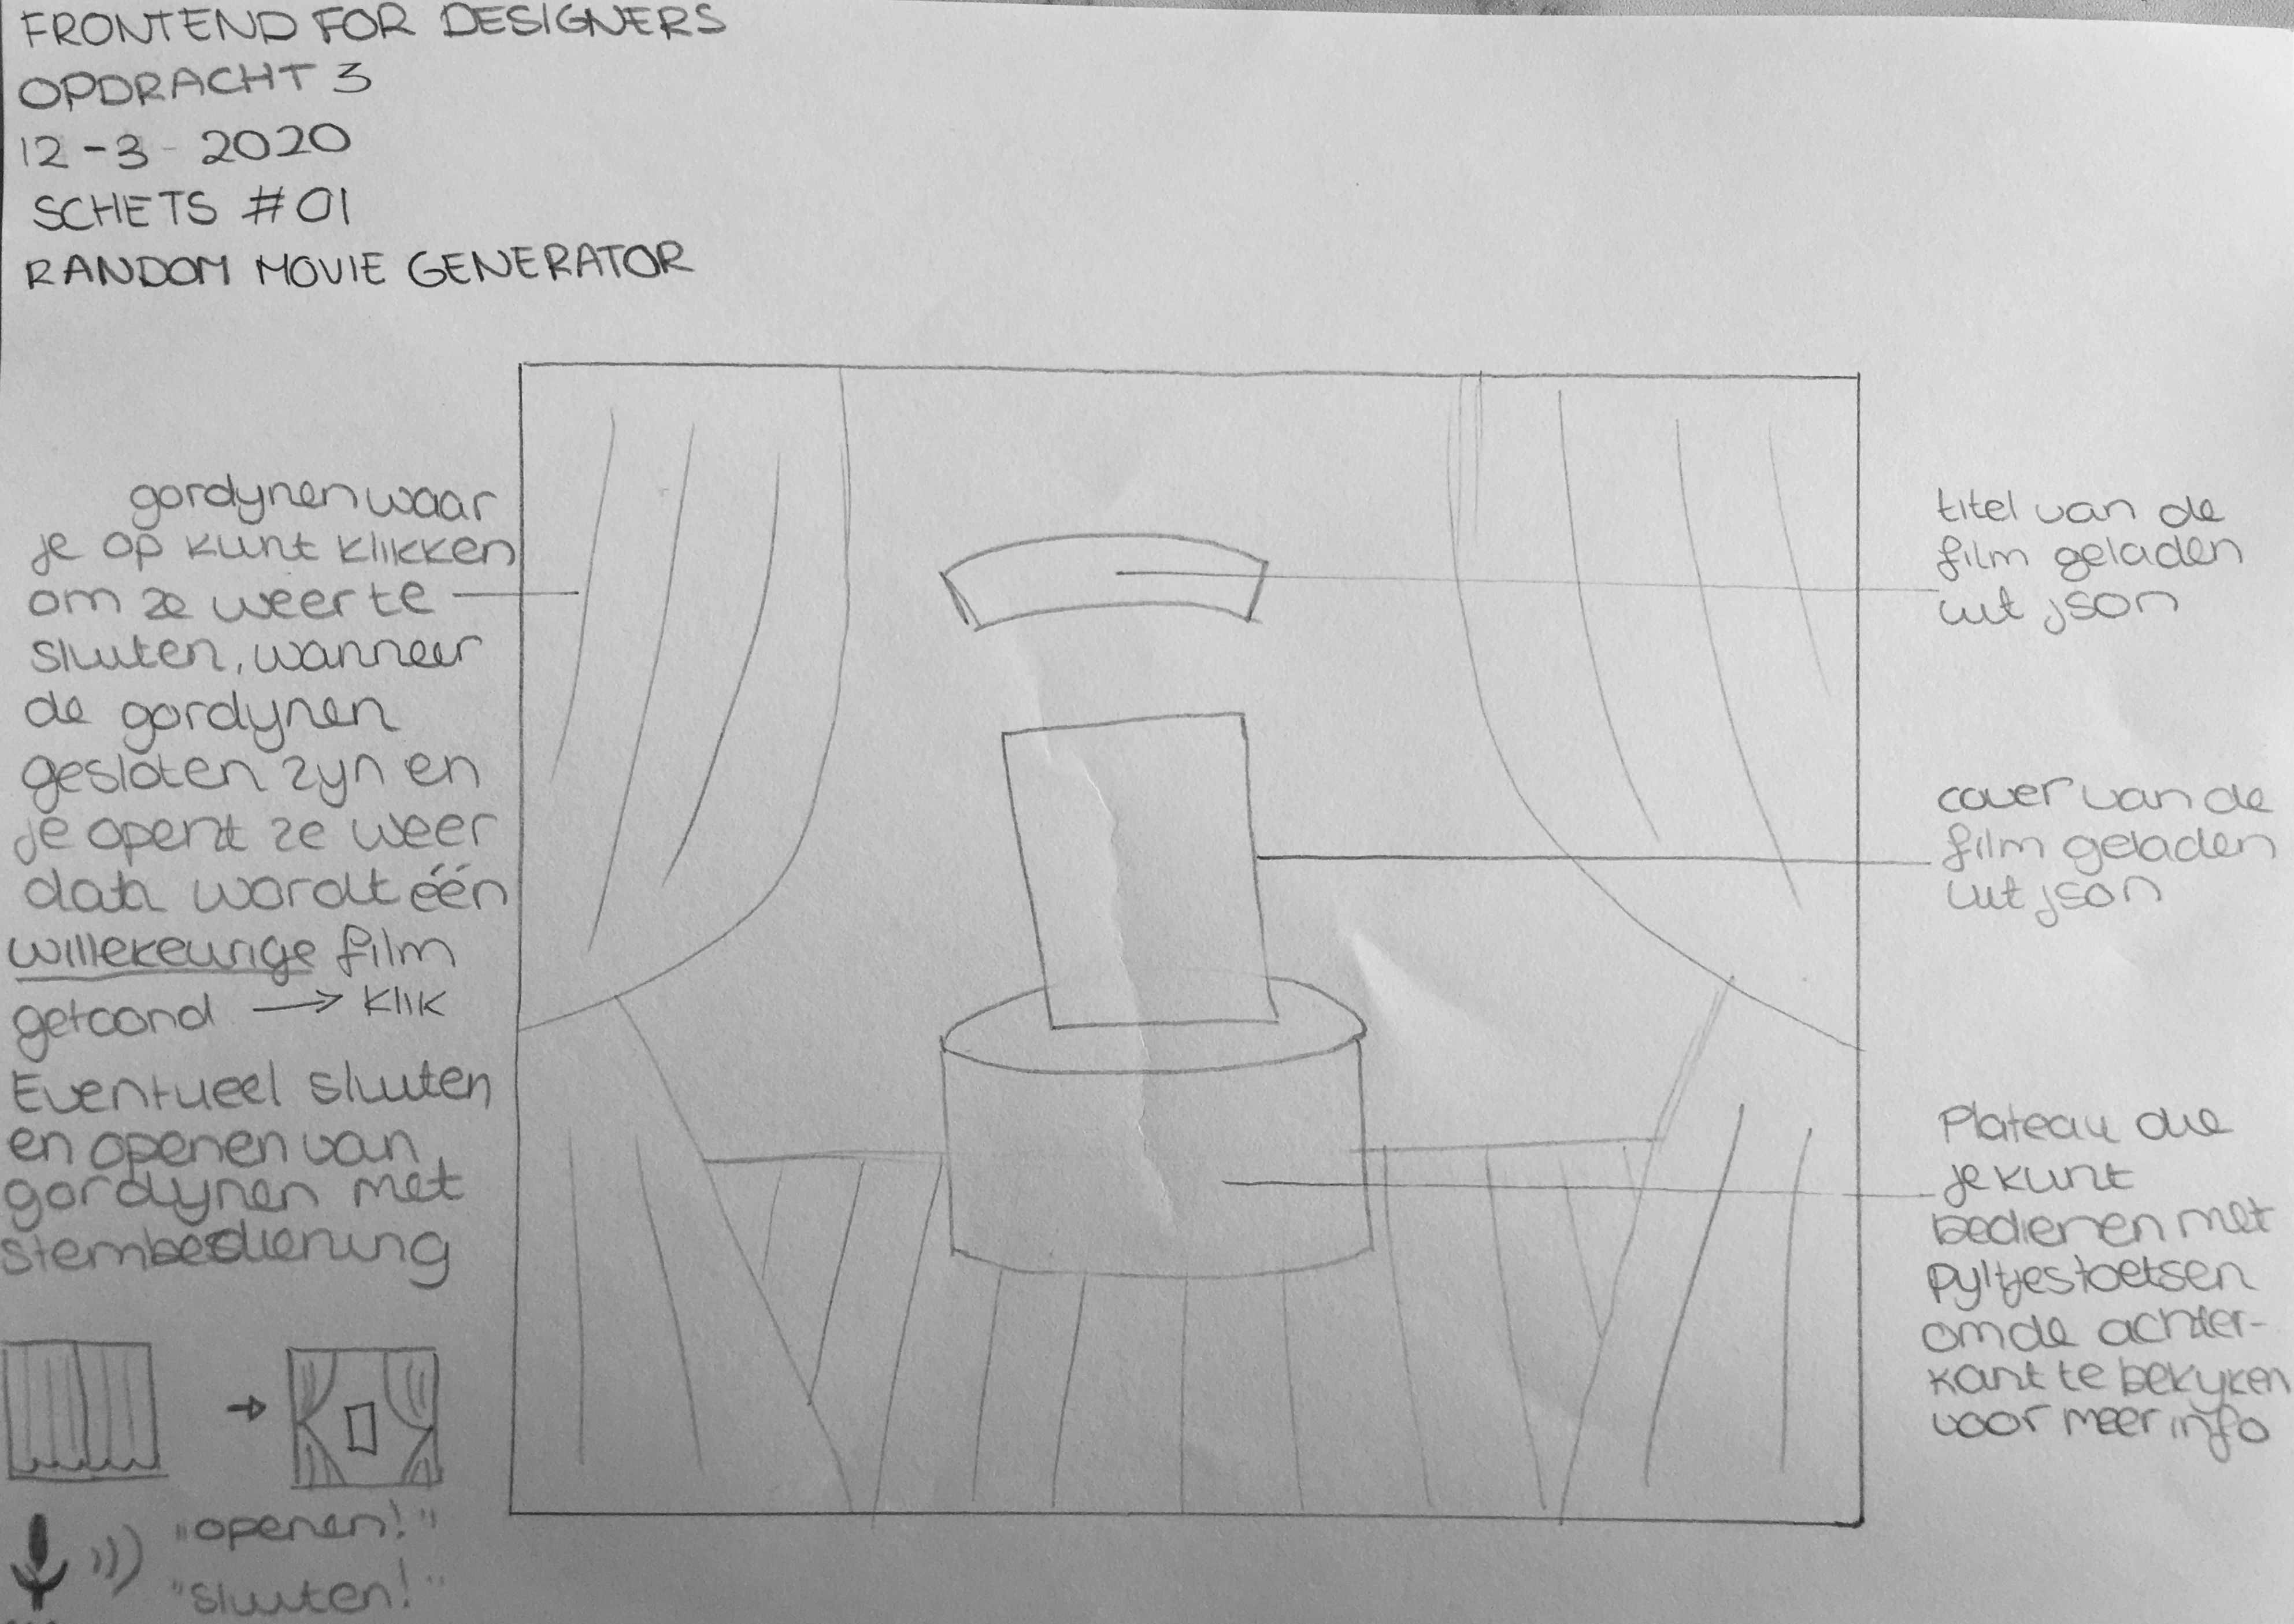 FRONTEND FOR DESIGNERS
OPDRACHT 3
12-3-2020
SCHETS #01
RANDOM MOVIE GENERATOR
gordijnen waar
je op kunt klikken
om ze weer te
sluiten, wanneer
de gordijnen
gesloten zijn en
je opent ze weer
dan wordt één
willekeurige film
getoond → klik
Eventueel sluiten
en openen van
gordijnen met
stembediening
"openen!"
"sluiten!"
titel van de
film geladen
uit json
cover van de
film geladen
uit json
Plateau die
je kunt
bedienen met
pijltjestoetsen
om de achter-
kant te bekijken
voor meer info